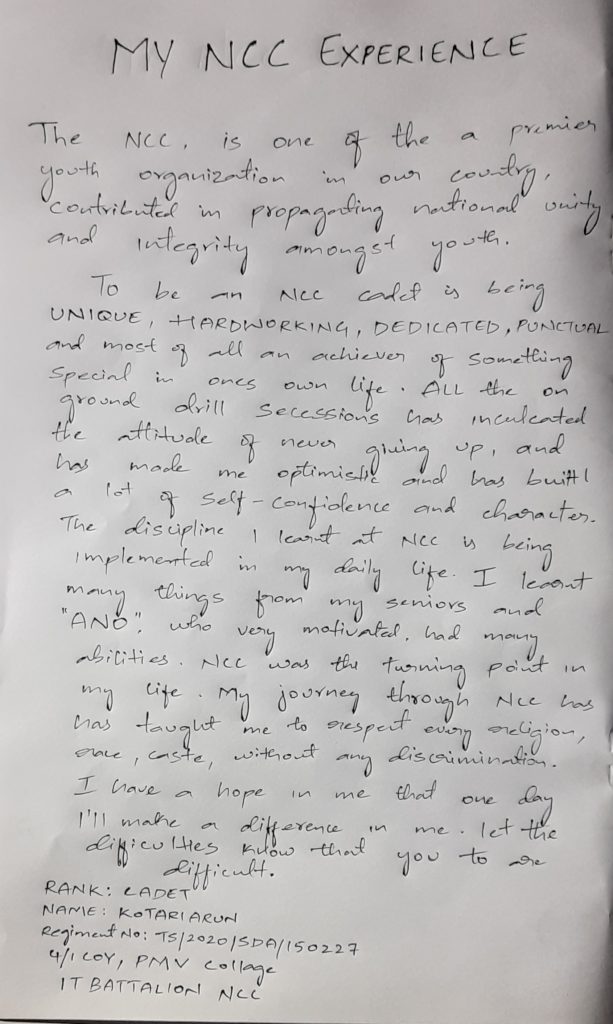 MY NCC EXPERIENCE
The NCC, is one of the a premier
youth organization in our country,
contributed in propagating national unity
and integrity amongst youth.
To be an NCC cadet is being
UNIQUE, HARDWORKING, DEDICATED, PUNCTUAL
and most of all an achiever of something
special in ones own life. ALL the on
ground drill secessions has inculcated
the attitude of never giving up, and
has made me optimistic and has built
a lot of self-confidence and character.
The discipline I learnt at NCC is being
implemented in my daily life. I learnt
many things from my seniors and
"ANO". who very motivated, had many
abilities. NCC was the turning point in
my life. My journey through NCC has
has taught me to respect every religion,
race, caste, without any discrimination.
I have a hope in me that one day
I'll make a difference in me. let the
difficulties know that you to are
difficult.
RANK: CADET
NAME: KOTARI ARUN
Regiment No: TS/2020/SDA/150227
4/1 COY, PMV Collage
1T BATTALION NCC